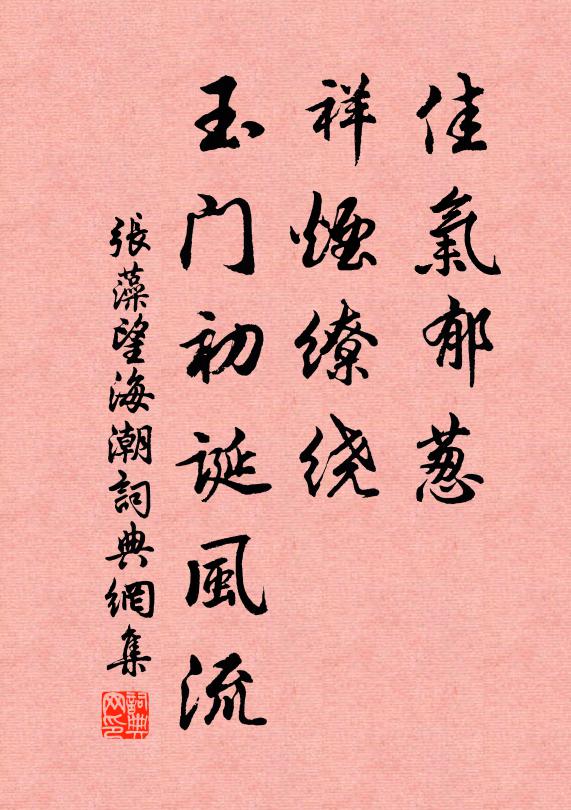 佳氣郁葱
祥煙繚绕
玉门初诞風流
張藻望海潮詞典網集
詞典网印